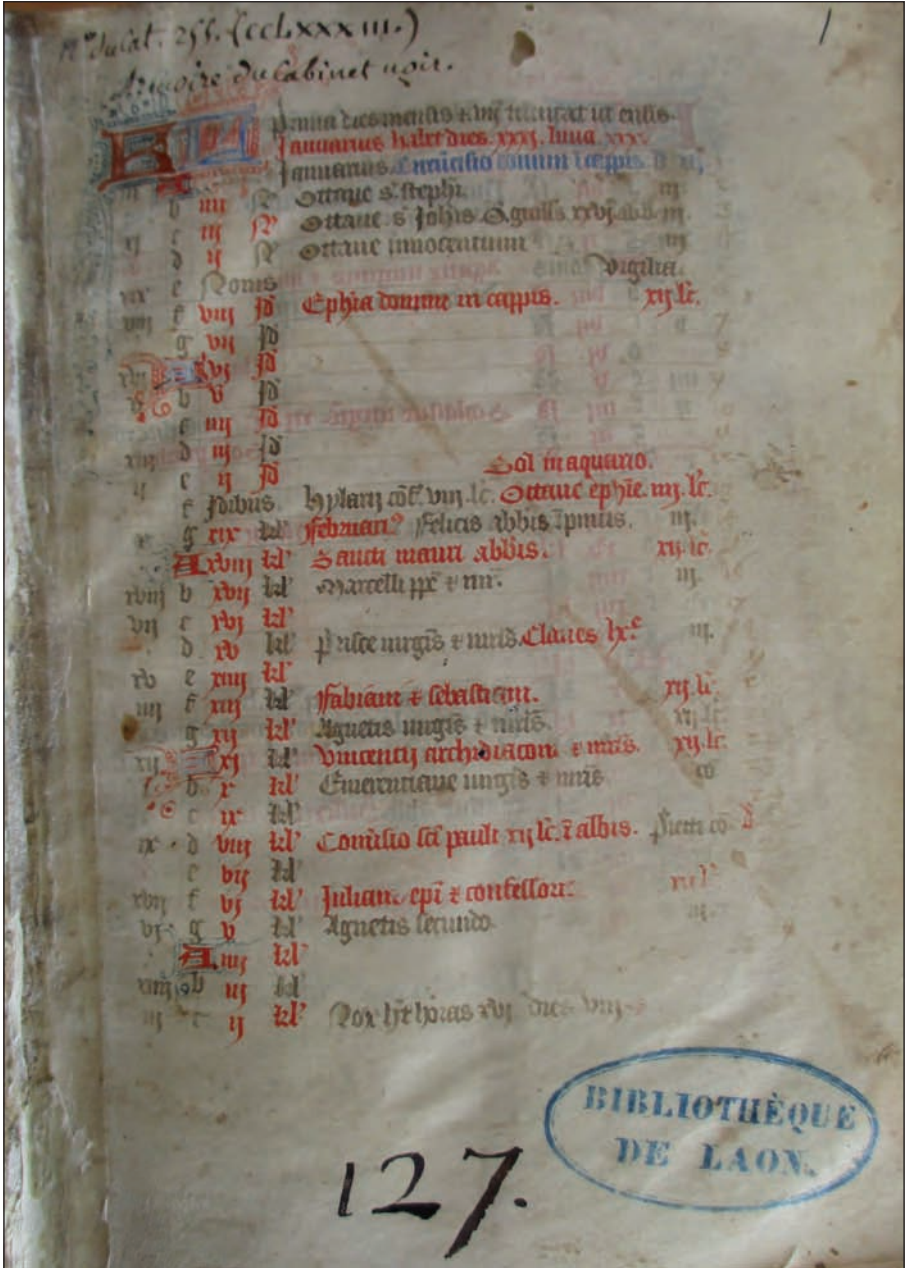 N° du Cat. 255. (CCLXXXIII.)
Armoire du Cabinet noir.
1
Prima dies mensis & vij truncat ut ensis.
Januarius habet dies. xxxj. luna. xxx.
Januarius. Circūcisio domini i cappis.
b iiij N Ottaue s. stephi. iij.
c iij N Ottaue s. Johis iij.
ij d ij N Ottaue innocentium iij
xix e Nonis Vigilia.
viij f viij Jd Ephia domini in cappis. xij. lc.
g vij Jd
xvj A vj Jd
v b v Jd
c iiij Jd
xiij d iij Jd
ij e ij Jd Sol in aquario.
f Jdibus. hylarij cōf. viij. lc. Ottaue ephie. iij. lc.
x g xix kl' februarij Felicis ipincis. iij.
A xviij kl' Sancti mauri abbis. xij. lc.
xviij b xvij kl' Marcelli pp̄ & mr̄. iij.
vij c xvj kl'
d xv kl' Prisce uirgis & mris. Claues lxx iij.
xv e xiiij kl'
iiij f xiij kl' Fabiani & sebastiani. xij. lc.
g xij kl' Agnetis uirgis & mris. xij. lc.
xij A xj kl' Vincentij archidiaconi & mris. xij. lc.
b x kl' Emerentiane uirgis & mris co
c ix kl'
ix d viij kl' Conūsio sci pauli xij lc. i albis. co.
e vij kl'
xvij f vj kl' Juliani epi & confessoris xij l
vj g v kl' Agnetis secundo. iij.
A iiij kl'
xiiij b iij kl'
iij c ij kl' Nox h̄t horas xvj dies viij
BIBLIOTHÈQUE
DE LAON.
127.